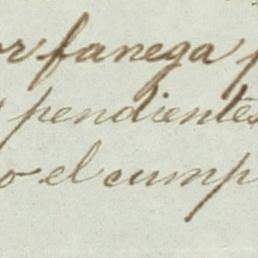 or fanega p
pendientes
o el cump